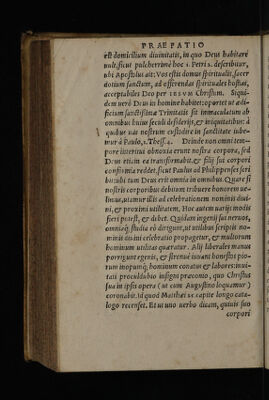 PRAEFATIO
est domicilium diuinitatis, in quo Deus habitare
uult, sicut pulcherrimè hoc 1. Petri 2. describitur,
ubi Apostolus ait: Vos estis domus spiritualis, sacer
dotium sanctum, ad offerendas spirituales hostias,
acceptabiles Deo per IESVM Christum. Siqui
dem uerò Deus in homine habitet: oportet ut ædi-
ficium sanctissimæ Trinitatis sit immaculatum ab
omnibus huius seculi desiderijs, & iniquitatibus: à
quibus uas nostrum custodire in sanctitate iube-
mur à Paulo, 1. Thess. 4. Deinde non omni tem-
pore interitui obnoxia erunt nostra corpora, sed
Deus etiam ea transformabit, & filij sui corpori
conformia reddet, sicut Paulus ad Philippenses scri
bit: ubi tum Deus erit omnia in omnibus. Quare si
nostris corporibus debitum tribuere honorem ue-
limus, utamur illis ad celebrationem nominis diui-
ni, & proximi utilitatem. Hoc autem uarijs modis
fieri potest, & debet. Quidam ingenij sui neruos,
omniaq; studia eò dirigunt, ut utilibus scriptis no-
minis diuini celebratio propagetur, & multorum
hominum utilitas quæratur. Alij liberales manus
porrigunt egenis, & strenuè iuuant honestos pio-
rum inopumq; hominum conatus & labores: inui-
tati proculdubio insigni præconio, quo Christus
sua in ipsis opera (ut cum Augustino loquamur)
coronabit. Id quod Matthæi 25 capite longo cata-
logo recenset. Et ut uno uerbo dicam, quiuis suo
corpori